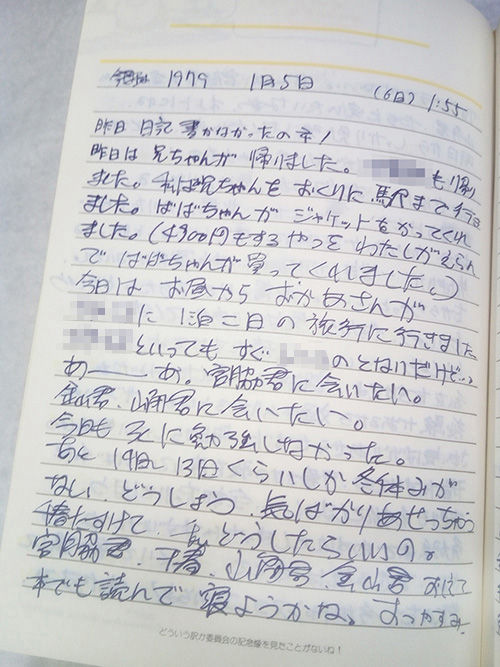 1979 1月5日 (6日) 1:55
昨日 日記 書かなかったのネ!
昨日は 兄ちゃんが 帰りました。 も帰り
ました。私は兄ちゃんを おくりに 駅まで行き
ました。ばばちゃんが ジャケットをかってくれ
ました。(4900円もするやつを わたしがえらん
で ばばちゃんが 買ってくれました。)
今日は お昼から おかあさんが
に 1泊二日の 旅行に行きました
といっても すぐ のとなりだけど…
あーーあ。宮脇君に会いたい。
金山君、山岡君に会いたい。
今日も 勉強しなかった。
あと 13日くらいしか 冬休みが
ない どうしよう 気ばかりあせっちゃう
たすけて 私どうしたらいいの。
宮脇君、山岡君、金山君 おしえて
本でも読んで 寝ようかな。おっやすみ
どういう訳か委員会の記念像を見たことがないね!